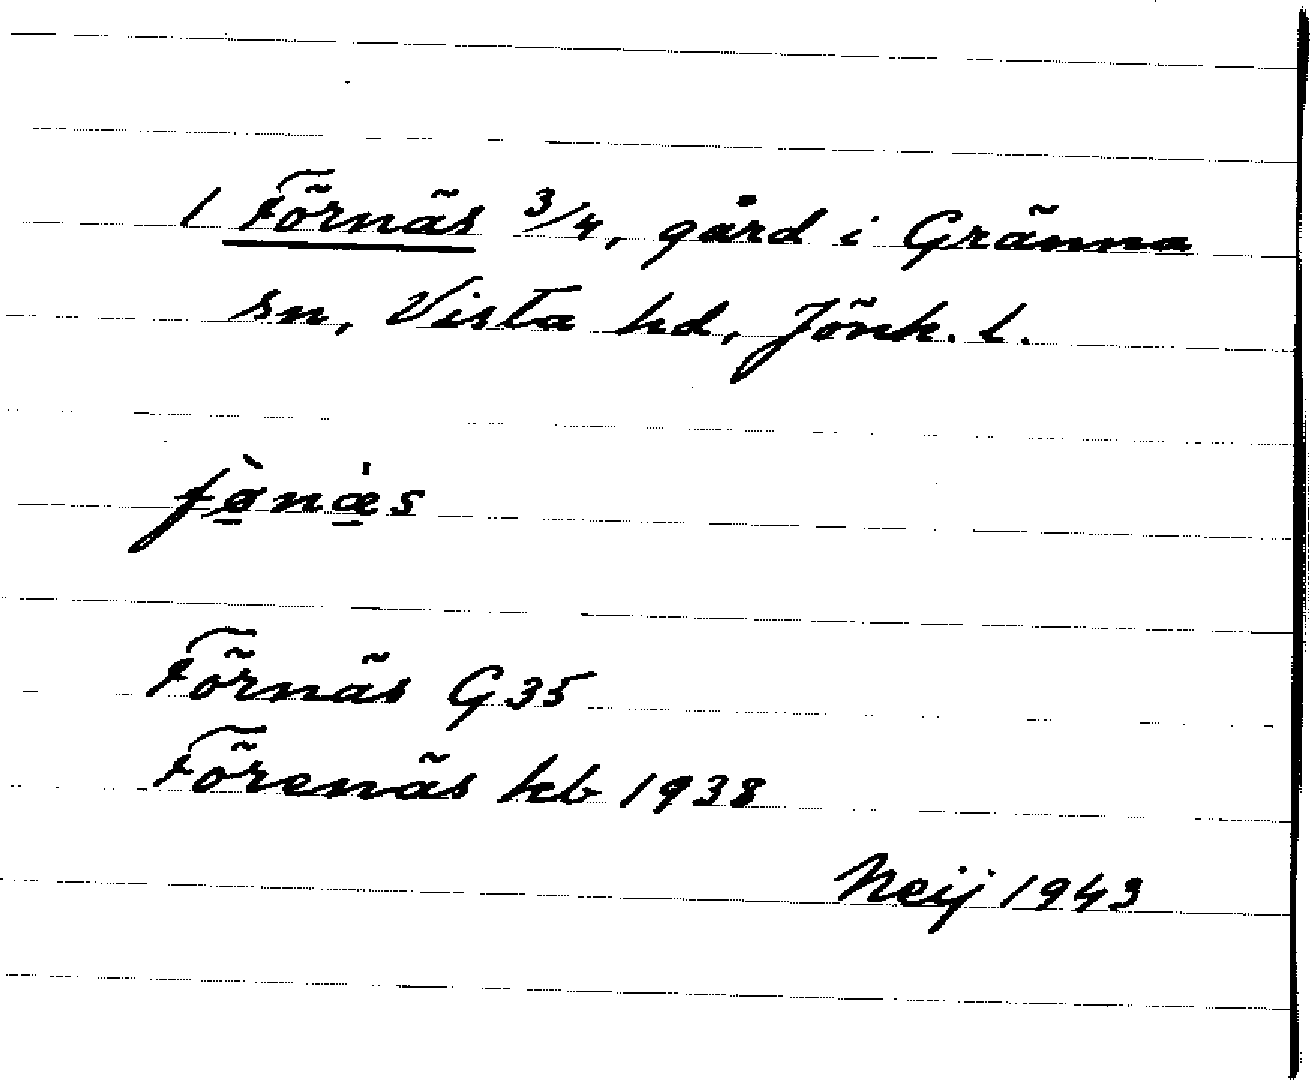 1 Förnäs 3/4, gård i Gränna
sn, Vista hd, Jönk. l.
fø̠̀næ̠̍s
Förnäs G35
Förenäs kb 1938
Neij 1943